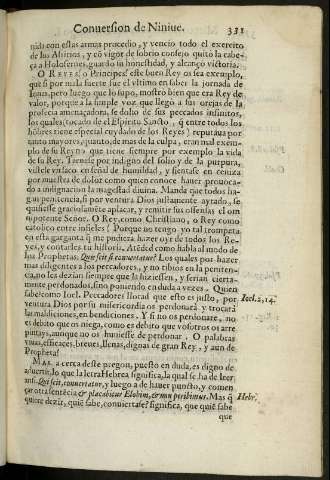 Conuersion de Niniue. 331
nida con estas armas procedio, y vencio todo el exercito
de los Assirios, y cõ vigor de sobrio consejo quitò la cabe-
ça a Holosernes, guardò su honestidad, y alcançò victoria.
O REYES! o Principes! este buen Rey os sea exemplo,
que si por mala suerte fue el vltimo en saber la jornada de
Ionas, pero luego que lo supo, mostrò bien que era Rey de
valor, porque a la simple voz que llegò a sus orejas de la
profecia amenaçadora, se dolio de sus peccados infinitos,
los quales (tocado de el Espiritu Sancto, q̃ entre todos los
hõbres tiene especial cuydado de los Reyes) reputaua por
tanto mayores, quanto, de mas de la culpa, eran mal exem-
plo de su Reyno que tiene siempre por exemplo la vida
de su Rey. Tienese por indigno del solio y de la purpura,
vistese vn saco en señal de humildad, y sientase en ceniza
por muestra de dolor como quien conoce hauer prouoca-
do a indignacion la magestad diuina. Manda que todos ha-
gan penitencia, si por ventura Dios justamente ayrado, se
quisiesse graciosamẽte aplacar, y remitir sus offensas el om
nipotente Señor. O Rey, como Christiano, o Rey como
catolico entre infieles! Porque no tengo yo tal trompeta
en esta garganta q̃ me pudiera hazer oyr de todos los Re-
yes, y contarles tu historia. Atẽded como habla al modo de
los Prophetas. Quis scit si conuertatur? Los quales por hazer
mas diligentes a los peccadores, y no tibios en la peniten-
cia, no les dezian siempre que la hiziessen, y serian cierta-
mente perdonados, sino poniendo en duda a vezes. Quien
sabe? como Ioel. Peccadores llorad que esto es justo, por Ioel. 2, 14.
ventura Dios por su misericordia os perdonarà y trocarà
las maldiciones, en bendiciones. Y si no os perdonare, no
es debito que os niega, como es debito que vosotros os arre
pintays, aunque no os huuiesse de perdonar. O palabras
viuas, efficaces, breues, llenas, dignas de gran Rey, y aun de
Propheta!
MAS a cerca deste pregon, puesto en duda, es digno de
aduertir, lo que la letra Hebrea significa, la qual se ha de leer
ansi. Qui scit, conuertatur, y luego a de hauer puncto, y comen
çar otra sentẽcia & placabitur Elohim, & non peribimus. Mas q̃ Hebr.
quiere dezir, quiẽ sabe, conuiertase? significa, que quiẽ sabe
que